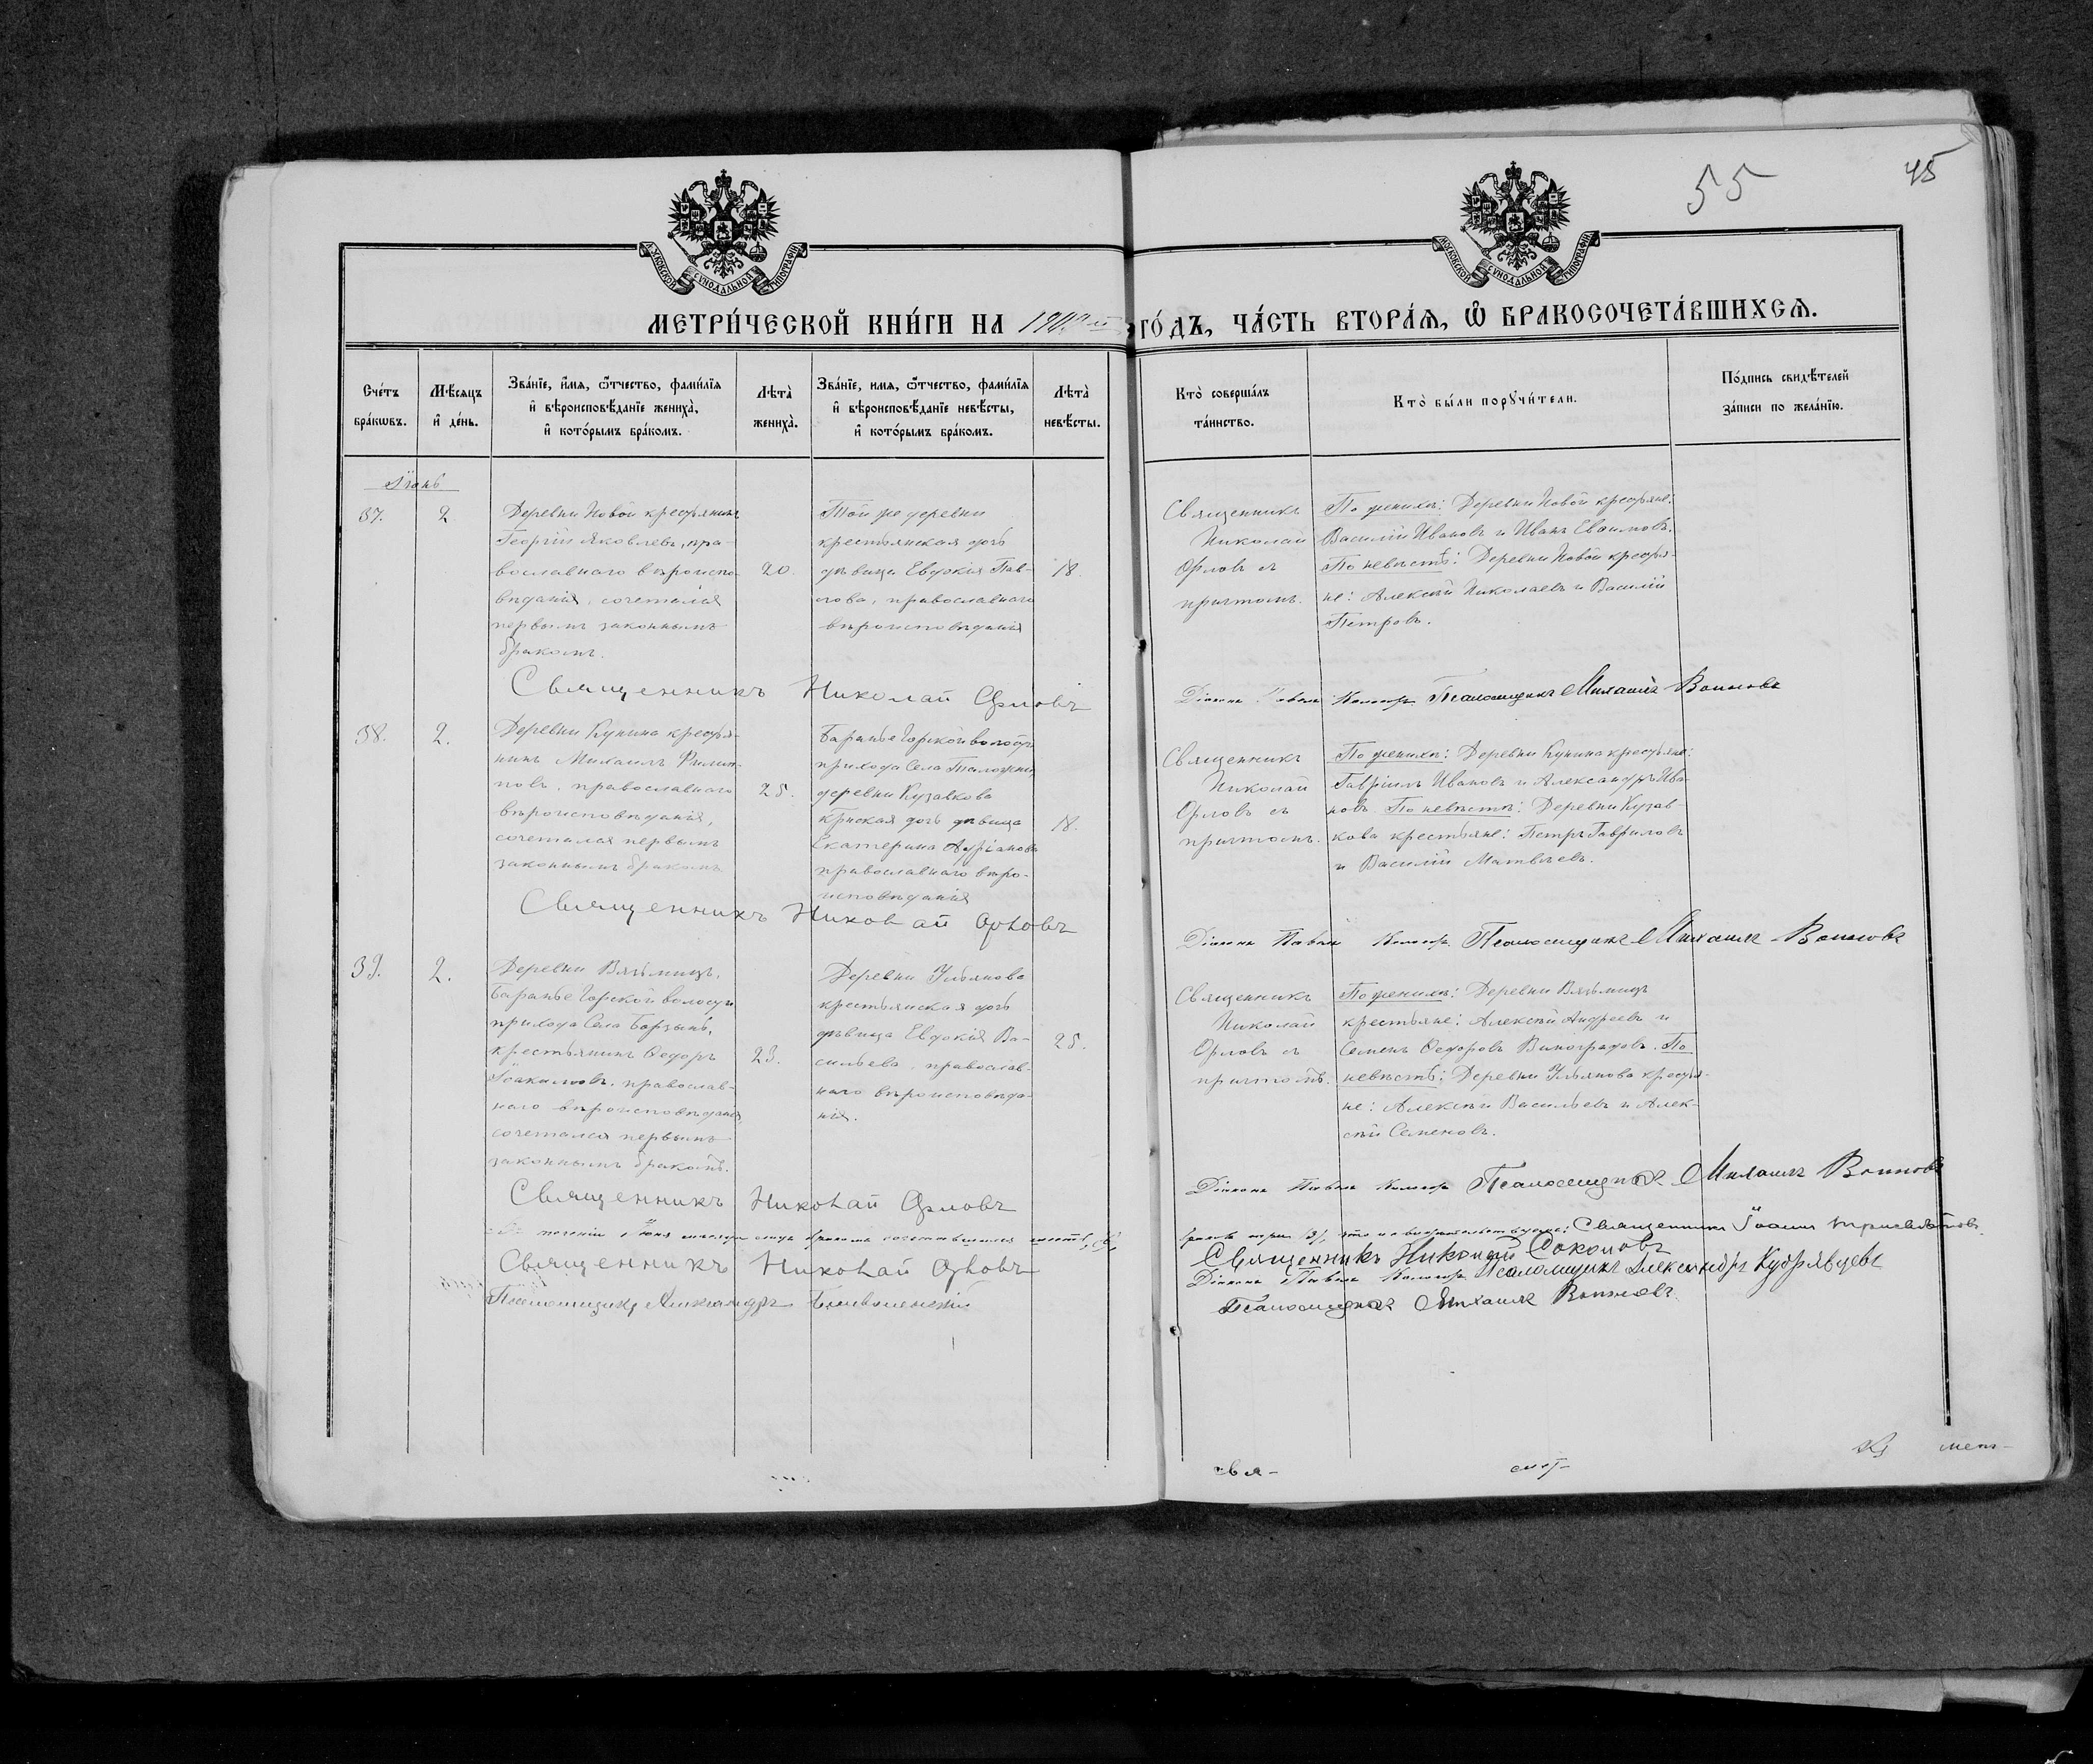 55
45
МОСКОВСКОЙ СУНОДАЛЬНОЙ ТИПОГРАФІИ
МОСКОВСКОЙ СУНОДАЛЬНОЙ ТИПОГРАФІИ
МЕТРИ́ЧЕСКОЙ КНИ́ГИ НА
ГО́ДЪ, ЧА́СТЬ ВТОРА́Я, Ѿ БРАКОСОЧЕТА́ВШИХСЯ.
Сче́тъ
бра́кωвъ.
Мѣ́сяцъ
и҆ де́нь.
Зва́нїе, и҆́мя, ѻ҆́тчество, фами́лїя
и҆ вѣроисповѣ́данїе жениха̀,
и҆ кото́рымъ бра́комъ.
Лѣта̀
жениха̀.
Зва́нїе, имя, ѻ҆́тчество, фами́лїя
и҆ вѣроисповѣ́данїе невѣ́сты,
и҆ кото́рымъ бра́комъ.
Лѣта̀
невѣ́сты.
Кто̀ соверша́лъ
та́инство.
Кто̀ бы́ли порꙋчи́тели.
По́дпись свидѣ́телей
за́писи по жела́нїю.
Іюнь
37.
2
Деревни Новой крестьянинъ
Георгій Яковлевъ, пра-
вославнаго вѣроиспо-
вѣданія, сочетался
первымъ законнымъ
бракомъ.
20.
Той же деревни
крестьянская дочь
дѣвица Евдокія Пав-
лова, православнаго
вѣроисповѣданія
18.
Священникъ
Николай
Орловъ съ
причтомъ.
По женихѣ: Деревни Новой крестьяне:
Василій Ивановъ и Иванъ Евѳимовъ.
По невѣстѣ: Деревни Новой крестья-
не: Алексѣй Николаевъ и Василій
Петровъ.
Священникъ Николай Орловъ
Діаконъ Павелъ Псаломщикъ Михаилъ Воиновъ
38.
2.
Деревни Кунина крестья-
нинъ Михаилъ Филип-
повъ, православнаго
вѣроисповѣданія,
сочетался первымъ
законнымъ бракомъ
25.
Баранье Горской волости
прихода Села
деревни Кузавкова
крнская дочь дѣвица
Екатерина Адріанова
православнаго вѣро-
исповѣданія
18.
Священникъ
Николай
Орловъ съ
причтомъ.
По женихѣ: Деревни Кунина крестьяне:
Гавріилъ Ивановъ и Александръ Ива-
новъ. По невѣстѣ: Деревни Кузав-
кова крестьяне: Петръ Гавриловъ
и Василій Матвѣевъ.
Священникъ Николай Орловъ
Діаконъ Павелъ Псаломщикъ Михаилъ Воиновъ
39.
2.
Деревни Вязьмицъ,
Баранье Горской волости
прихода Села Борзынь,
крестьянинъ Ѳедоръ
Іоакимовъ, православ-
наго вѣроисповѣданія
сочетался первымъ
законнымъ бракомъ.
23.
Деревни Ульянова
крестьянская дочь
дѣвица Евдокія Ва-
сильева, православ-
наго вѣроисповѣда-
нія.
25.
Священникъ
Николай
Орловъ съ
причтомъ.
По женихѣ: Деревни Вязьмицъ
крестьяне: Алексѣй Андреевъ и
Семенъ Ѳедоровъ Виноградовъ. По
невѣстѣ: Деревни Ульянова крестья-
не: Алексѣй Васильевъ и Алек-
сѣй Семеновъ.
Священникъ Николай Орловъ
Діаконъ Павелъ Псаломщикъ Михаилъ Воиновъ
теченіи Іюня мѣсяца бракомъ сочетавшихся
браковъ три (3), Священникъ Іоаннъ
Священникъ Николай Орловъ
Священникъ Николай Соколовъ
Діаконъ Павелъ Псаломщикъ Александръ Кудрявцевъ
Псаломщикъ Александръ
Псаломщикъ Михаилъ Воиновъ
свя-